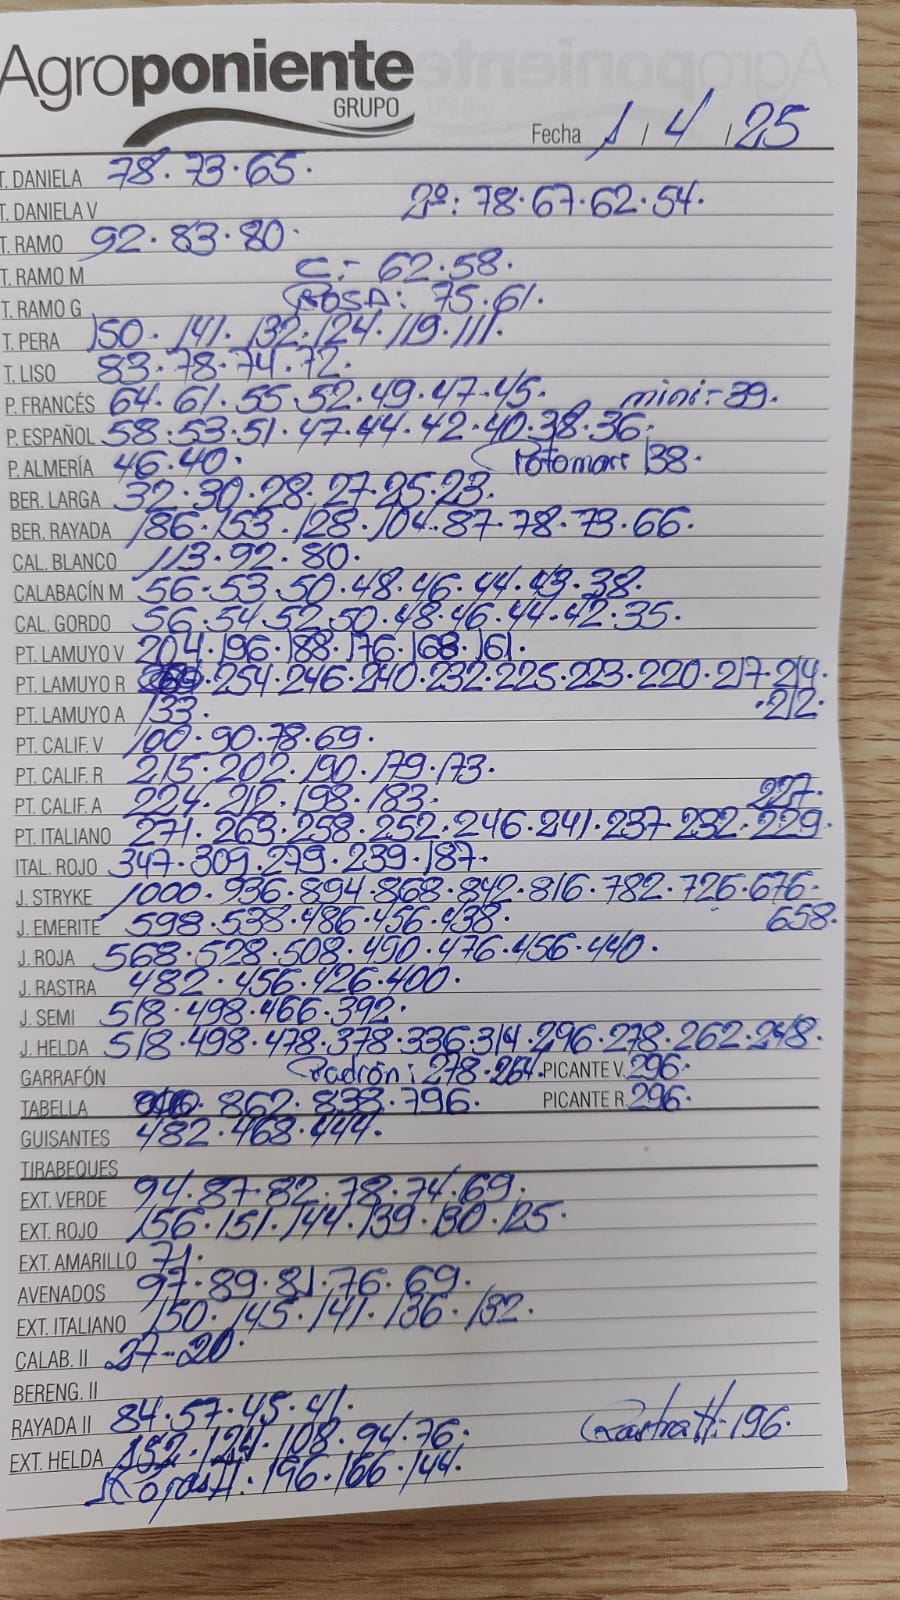 Agroponiente
GRUPO
Fecha 1 / 4 / 25
T. DANIELA 78. 73. 65.
T. DANELA V 2ª: 78. 67. 62. 54.
T. RAMO 92. 83. 80.
T. RAMO M C.- 62. 58.
T. RAMO G ROSA: 75. 61.
T. PERA 150. 141. 132. 124. 119. 111.
T. LISO 83. 78. 74. 72.
P. FRANCÉS 64. 61. 55. 52. 49. 47. 45. mini:- 39.
P. ESPAÑOL 58. 53. 51. 47. 44. 42. 40. 38. 36.
P. ALMERÍA 46. 40. 138.
BER. LARGA 32. 30. 28. 27. 25. 23.
BER. RAYADA 186. 153. 128. 104. 87. 78. 73. 66.
CAL. BLANCO 113. 92. 80.
CALABACÍN M 56. 53. 50. 48. 46. 44. 43. 38.
CAL. GORDO 56. 54. 52. 50. 48. 46. 44. 42. 35.
PT. LAMUYO V 204. 196. 188. 176. 168. 161.
PT. LAMUYO R 254. 246. 240. 232. 225. 223. 220. 217. 214.
PT. LAMUYO A 133. .212.
PT. CALIF. V 100. 90. 78. 69.
PT. CALIF. R 215. 202. 190. 179. 173.
PT. CALIF. A 224. 212. 198. 183. 227.
PT. ITALIANO 271. 263. 258. 252. 246. 241. 237. 232. 229.
ITAL. ROJO 347. 309. 279. 239. 187.
J. STRYKE 1000. 936. 894. 868. 842. 816. 782. 726. 676.
J. EMERITE 598. 538. 486. 456. 438. 658.
J. ROJA 568. 528. 508. 490. 476. 456. 440.
J. RASTRA 482. 456. 426. 400.
J. SEMI 518. 498. 466. 392.
J. HELDA 518. 498. 478. 378. 336. 314. 296. 278. 262. 248.
GARRAFÓN Padrón: 278. 264. PICANTE V. 296.
TABELLA 862. 838. 796. PICANTE R. 296.
GUISANTES 482. 468. 444.
TIRABEQUES
EXT. VERDE 94. 87. 82. 78. 74. 69.
EXT. ROJO 156. 151. 144. 139. 130. 125.
EXT. AMARILLO 71.
AVENADOS 97. 89. 81. 76. 69.
EXT. ITALIANO 150. 145. 141. 136. 132.
CALAB. II 27-20.
BERENG. II
RAYADA II 84. 57. 45. 41. Rastra II:- 196.
EXT. HELDA 152. 124. 108. 94. 76.
Rojas II: 196. 166. 144.